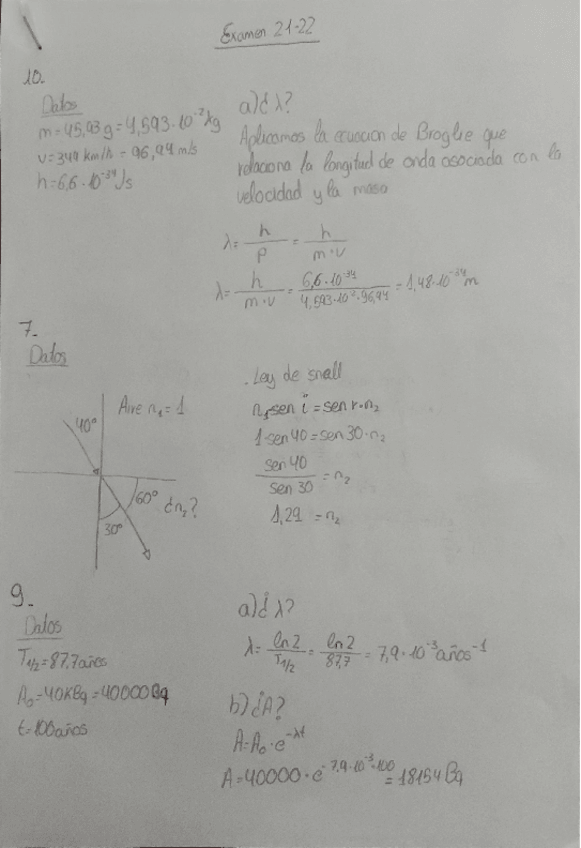 Examen 21-22
10.
Datos
m=45,93g=4,593·10⁻²kg
v=349 km/h=96,94 m/s
h=6,6·10⁻³⁴Js
a)¿λ?
Aplicamos la ecuacion de Broglie que
relaciona la longitud de onda asociada con la
velocidad y la masa
λ= h/p = h/m·v
λ= h/m·v = 6,6·10⁻³⁴/4,593·10⁻²·96,94 = 1,48·10⁻³⁴m
7.
Datos
40°
Aire n₁=1
60°
¿n₂?
30°
.Ley de snell
n₁sen i=sen r·n₂
1·sen 40=sen 30·n₂
sen 40/sen 30 = n₂
1,29 =n₂
9.
Datos
T1/2=87,7años
A₀=40KBq=40000Bq
t=100años
a)¿λ?
λ= ln 2/T1/2 = ln 2/87,7 = 7,9·10⁻³años⁻¹
b)¿A?
A=A₀·e^-λt
A=40000·e^-7,9·10⁻³·100 =18154Bq